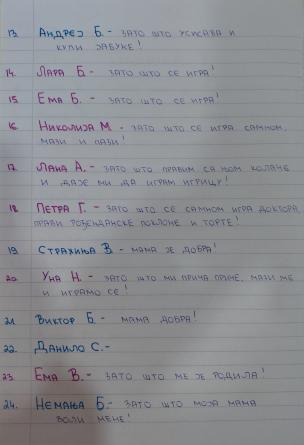 13. Андреј Б. - зато што усисава и
купи јабуке!
14. Лара Б. - зато што се игра!
15. Ема Б. - зато што се игра!
16. Николија М. - зато што се игра самном,
мази и пази!
17. Лана А. - зато што правим са њом колаче
и даје ми да играм игрицу!
18. Петра Г. - зато што се самном игра доктора,
прави рођенданске поклоне и торте!
19. Страхиња В. - мама је добра!
20. Уна Н. - зато што ми прича приче, мази ме
и играмо се!
21. Виктор Б. - мама добра!
22. Данило С. -
23. Ема В. - зато што ме је родила!
24. Немања Б. - зато што моја мама
воли мене!